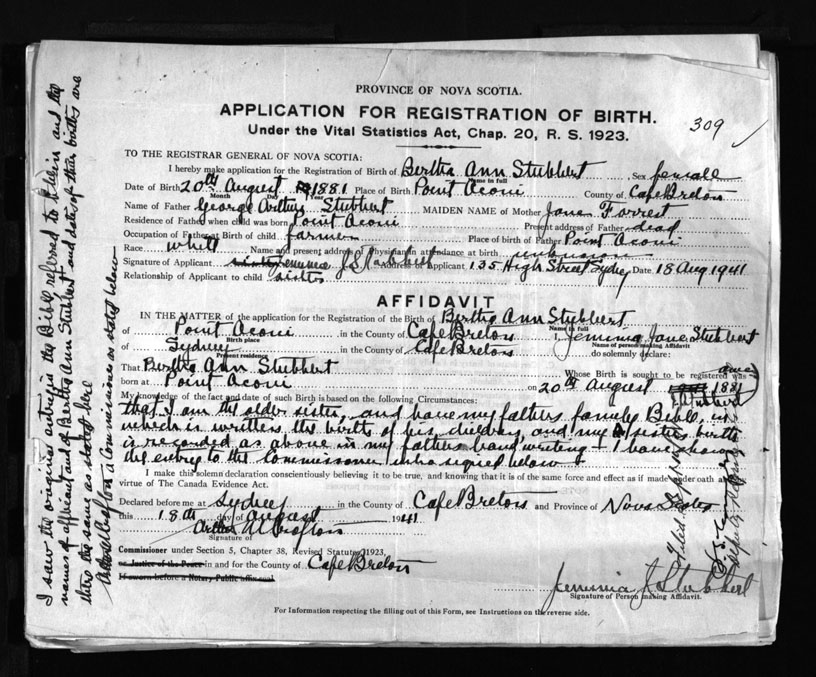 PROVINCE OF NOVA SCOTIA.
APPLICATION FOR REGISTRATION OF BIRTH.
Under the Vital Statistics Act, Chap. 20, R. S. 1923.
309
TO THE REGISTRAR GENERAL OF NOVA SCOTIA:
I hereby make application for the Registration of Birth of Bertha Ann Stubbert Sex female
Name in full
Date of Birth 20th August 1881 Place of Birth Point Aconi County of Cape Breton
Month Day Year
Name of Father George Arthur Stubbert MAIDEN NAME of Mother Jane Forrest
Residence of Father when child was born Point Aconi Present address of Father dead
Occupation of Father at Birth of child farmer Place of birth of Father Point Aconi
Race white Name and present address of Physician in attendance at birth unknown
Signature of Applicant Jemima J. Stubbert Address of Applicant 135 High Street Sydney Date 18 Aug 1941
Relationship of Applicant to child sister
AFFIDAVIT
IN THE MATTER of the application for the Registration of the Birth of Bertha Ann Stubbert
Name in full
of Point Aconi in the County of Cape Breton I, Jemima Jane Stubbert
Birth place
Name of person making Affidavit
of Sydney in the County of Cape Breton do solemnly declare:
Present residence
That Bertha Ann Stubbert Whose Birth is sought to be registered was
born at Point Aconi on 20th August 1881
My knowledge of the fact and date of such Birth is based on the following Circumstances:
that I am the older sister, and have my fathers family Bible, in
which is written the births of his children, and my sisters birth
is recorded as above in my fathers hand writing - I have shown
the entry to the Commissioner who signed below
I make this solemn declaration conscientiously believing it to be true, and knowing that it is of the same force and effect as if made under oath and
virtue of The Canada Evidence Act.
Declared before me at Sydney in the County of Cape Breton and Province of Nova Scotia
this 18th day of August 1941
Signature of
Commissioner under Section 5, Chapter 38, Revised Statutes 1923,
or Justice of the Peace in and for the County of Cape Breton
If sworn before a Notary Public affix seal
Jemima J Stubbert
Signature of Person making Affidavit.
For Information respecting the filling out of this Form, see Instructions on the reverse side.
I saw the original entry in the Bible referred to herein and the
names of applicant and of Bertha Ann Stubbert and date of their births are
there the same as stated here
a Commissioner as stated below